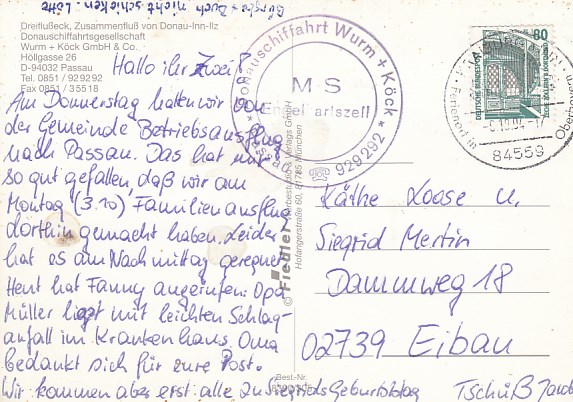 Bürgle + Buch nicht schicken - Lotte
Dreiflußeck, Zusammenfluß von Donau-Inn-Ilz
Donauschiffahrtsgesellschaft
Wurm + Köck GmbH & Co.
Höllgasse 26
D-94032 Passau
Tel. 0851 / 929292
Fax 0851 / 35518
Hallo ihr Zwei!
Am Donnerstag hatten wir von
der Gemeinde Betriebsausflug
nach Passau. Das hat mir
so gut gefallen, daß wir am
Montag (3.10) Familienausflug
dorthin gemacht haben. Leider
hat es am Nachmittag geregnet
Heut hat Fanny angerufen: Opa
Müller liegt mit leichten Schlag-
anfall im Krankenhaus. Oma
bedankt sich für eure Post.
Wir kommen aber erst alle zu Siegrids Geburtstag
Tschüß
Donauschiffahrt Wurm + Köck
MS
* Passau ☎ 929292 *
© Fiedler Werbestudio & Verlags GmbH
Hofangerstraße 60, 81735 München
Best-Nr.
80
DEUTSCHE BUNDESPOST
-6.10.94-17
84559
Ferienort in
Käthe Loose u.
Siegrid Mertin
Dammweg 18
02739 Eibau